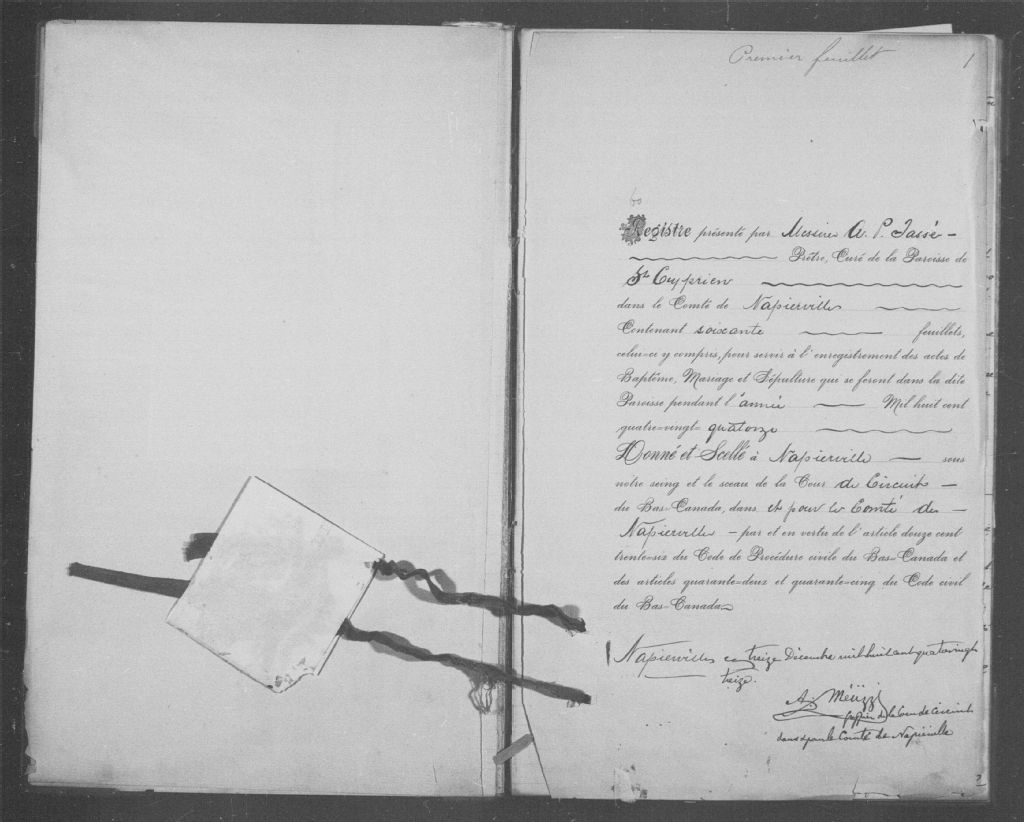 Premier feuillet 1
60
Registre présenté par Messire A. P. Tassé
Prêtre, Curé de la Paroisse de
St Cyprien
dans le Comté de Napierville
Contenant soixante feuillets,
celui-ci y compris, pour servir à l'enregistrement des actes de
Baptême, Mariage et Sépulture qui se feront dans la dite
Paroisse pendant l'année Mil huit cent
quatre-vingt-quatorze
Donné et Scellé à Napierville sous
notre seing et le sceau de la Cour de Circuit
du Bas-Canada, dans et pour le Comté de
Napierville par et en vertu de l'article douze cent
trente-six du Code de Procédure civile du Bas-Canada et
des articles quarante-deux et quarante-cinq du Code civil
du Bas-Canada
Napierville ce treize Décembre mil huit cent quatrevingt
treize.
greffier de la Cour de Circuit
dans & pour le Comté de Napierville